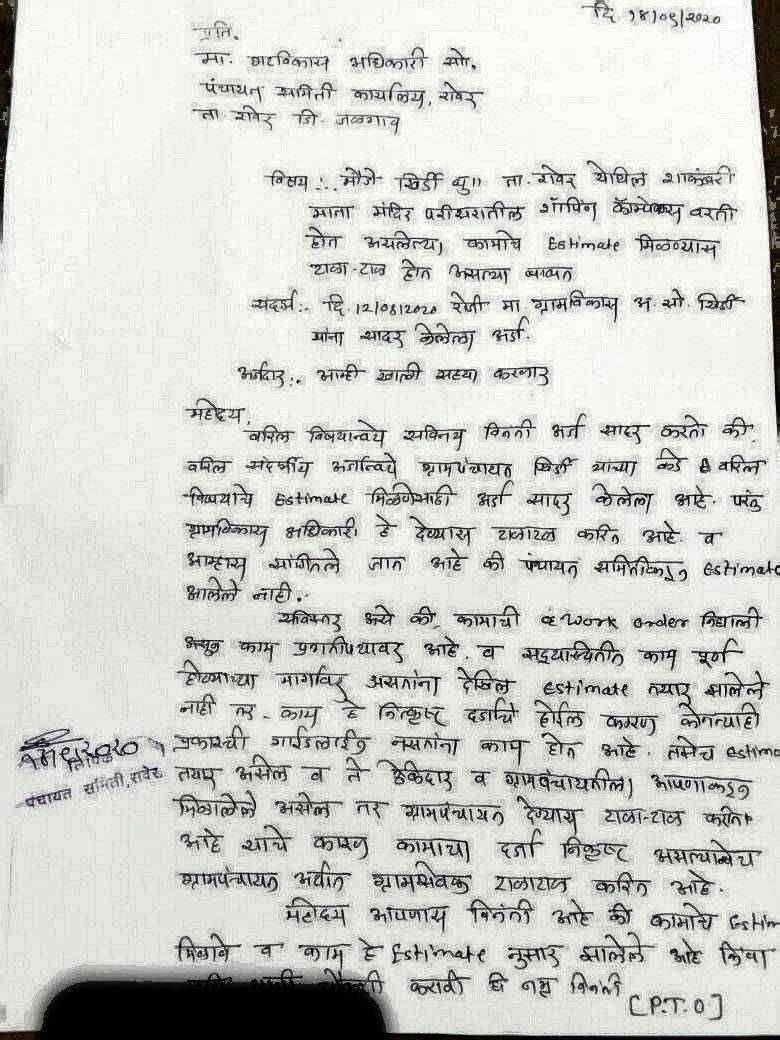 दि 18/09/2020
प्रति.
मा. गटविकास अधिकारी सो.
पंचायत समिती कार्यालय, रावेर
ता. रावेर जि. जळगाव
विषय :. मौजे खिर्डी बु॥ ता. रावेर येथिल शाकंबरी
माता मंदिर परीसरातील शॉपिंग कॅाम्पेक्स वरती
होत असलेल्या कामाचे Estimate मिळण्यास
टाळा-टाळ होत असल्या बाबत
संदर्भ :. दि. 12/08/2020 रोजी मा. ग्रामविकास अ. सो. खिर्डी
यांना सादर केलेला अर्ज.
अर्जदार :. आम्ही खाली सह्या करणार
महोदय,
वरिल विषयान्वये सविनय विनंती अर्ज सादर करतो की,
वरिल संदर्भीय अर्जान्वये ग्रामपंचायत खिर्डी यांच्या कडे वरिल
विषयाचे Estimate मिळणेसाठी अर्ज सादर केलेला आहे. परंतु
ग्रामविकास अधिकारी हे देण्यास टाळाटाळ करित आहे. व
आम्हास सांगितले जात आहे की पंचायत समितीकडुन Estimate
आलेले नाही.
सविस्तर असे की, कामाची work order निघाली
असुन काम प्रगतीपथावर आहे. व सद्यास्थितीत काम पूर्ण
होण्याच्या मार्गावर असतांना देखिल estimate तयार झालेले
नाही तर. काम हे निकृष्ट दर्जाचे होईल कारण कोणत्याही
प्रकारची गाईडलाईन नसतांना काम होत आहे. तसेच estima
तयार असेल व ते ठेकेदार व ग्रामपंचायतीला आपणाकडुन
मिळालेले असेल तर ग्रामपंचायत देण्यास टाळा-टाळ करीत
आहे याचे कारण कामाचा दर्जा निकृष्ट असल्यानेच
ग्रामपंचायत अर्थात ग्रामसेवक टाळाटाळ करित आहे.
महोदय आपणास विनंती आहे की कामाचे Estim
मिळावे व काम हे Estimate नुसार झालेले आहे किंवा
करावी ही नम्र विनंती
[P.T.O]
पंचायत समिती, रावेर